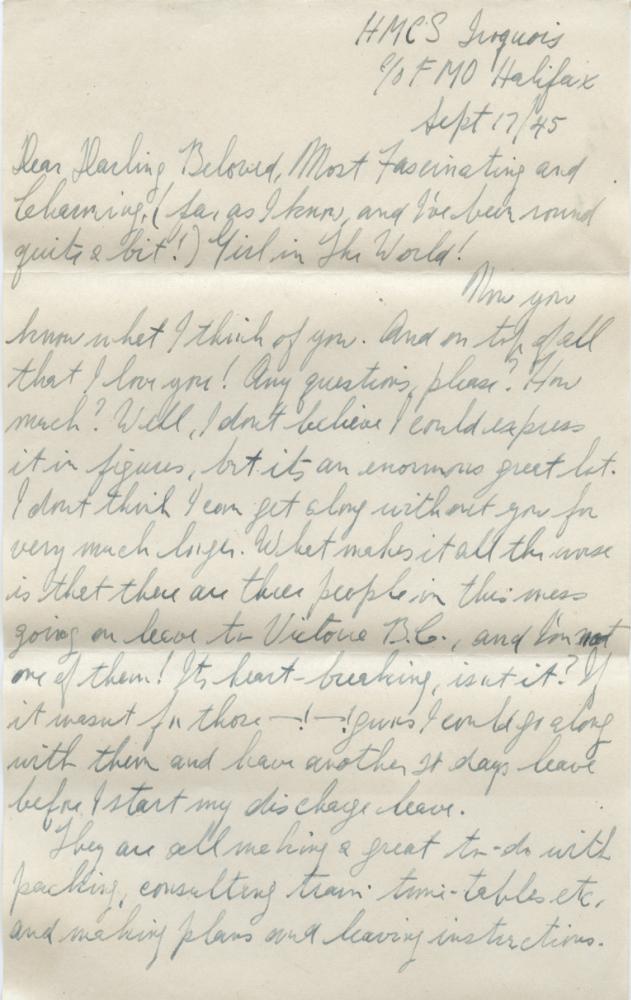 HMCS Iroquois
c/o FMO Halifax
Sept 17/45
Dear Darling Beloved, Most Fascinating and
Charming, (far as I know, and I've been round
quite a bit!) Girl in The World!
Now you
know what I think of you. And on top of all
that I love you! Any questions, please? How
much? Well, I don't believe I could express
it in figures, but its an enormous great lot.
I dont think I can get along without you for
very much longer. What makes it all the worse
is that there are three people in this mess
going on leave to Victoria B.C., and I'm not
one of them! Its heart-breaking, isnt it? If
it wasnt for those —!—! guns I could go along
with them and have another days leave
before I start my discharge leave.
They are all making a great to-do with
packing, consulting train time-tables etc,
and making plans and leaving instructions.